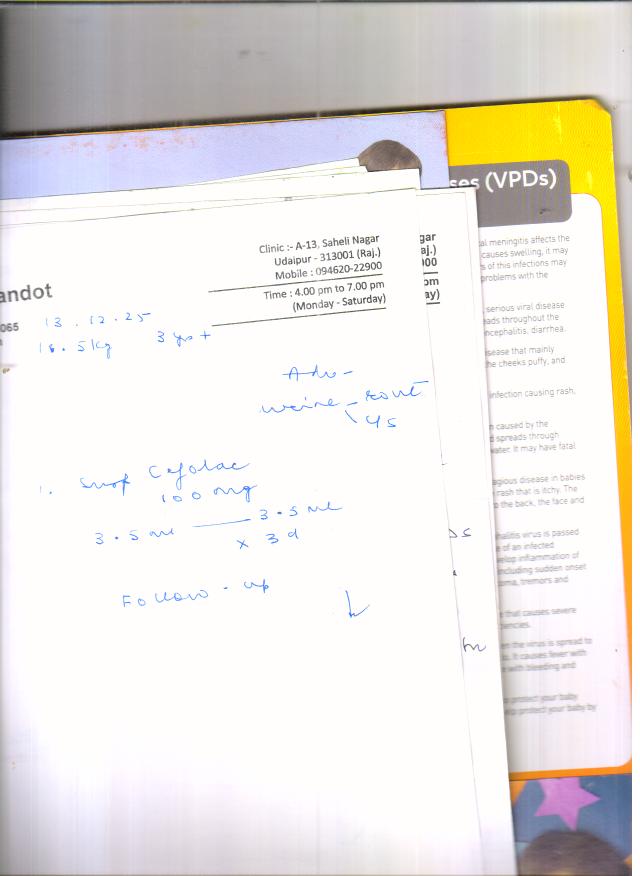 ses (VPDs)
Clinic :- A-13, Saheli Nagar
Udaipur - 313001 (Raj.)
Mobile : 094620-22900
Time : 4.00 pm to 7.00 pm
(Monday - Saturday)
andot
065
13.12.25
3 yrs +
Adv -
urine - rout
c/s
1. Syrup Cefolac
100 mg
3.5 ml — 3.5 ml
x 3 d
Follow-up
gar
aj.)
00
om
ay)
al meningitis affects the
causes swelling, it may
s of this infections may
problems with the
serious viral disease
eads throughout the
ncephalitis, diarrhea.
sease that mainly
he cheeks puffy, and
infection causing rash,
n caused by the
d spreads through
water. It may have fatal
agious disease in babies
rash that is itchy. The
o the back, the face and
halitis virus is passed
e of an infected
velop inflammation of
including sudden onset
oma, tremors and
that causes severe
en the virus is spread to
s. It causes fever with
e with bleeding and
protect your baby
help protect your baby by